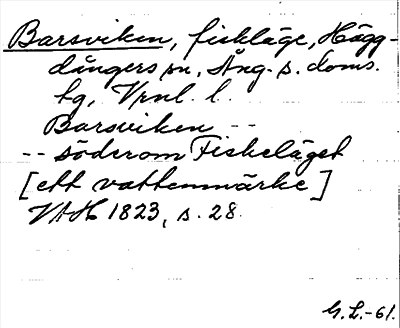 Barsviken, fiskläge, Hägg-
dångers sn, Ång. s. doms.
hg, Vrnl. l.
Barsviken --
-- söder om Fiskeläget
[ett vattenmärke]
VAH 1823, s. 28.
G. L. -61.